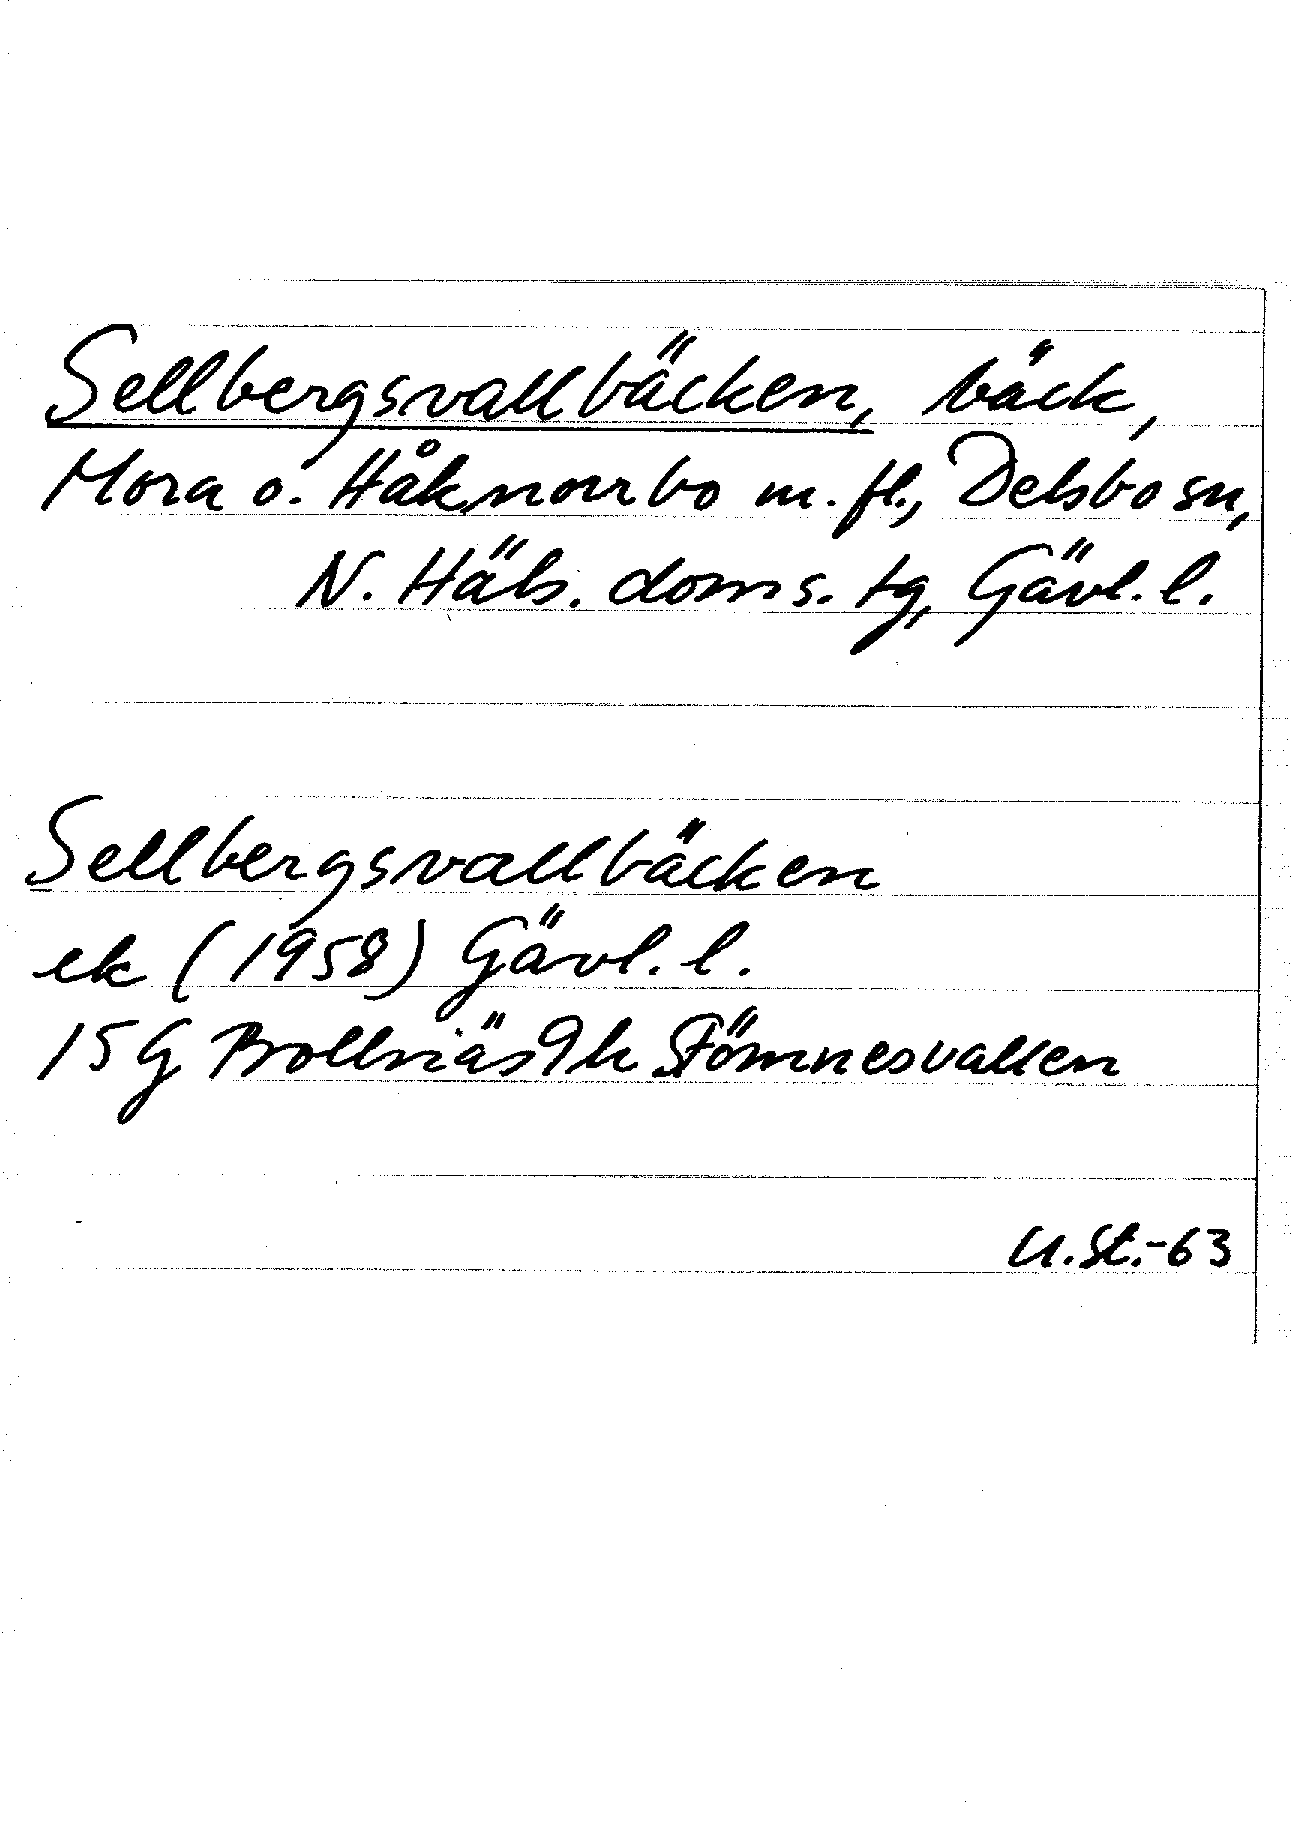 Sellbergsvallbäcken, bäck,
Mora o. Håknorrbo m. fl., Delsbo sn,
N. Häls. doms. tg, Gävl. l.
Sellbergsvallbäcken
ek (1958) Gävl. l.
15 G Bollnäs 9h Stömnesvallen
U. St. -63